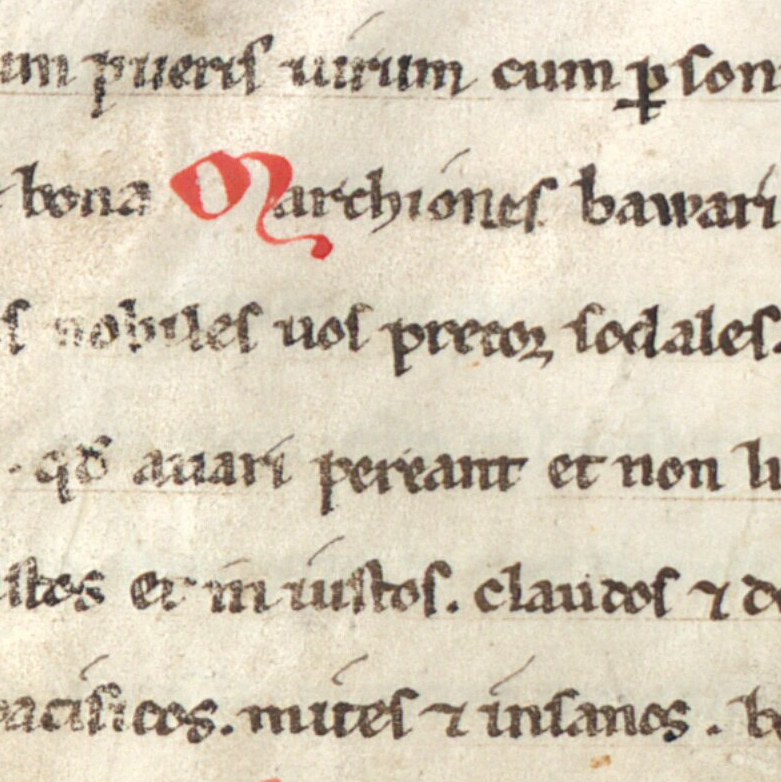 um pueris uirum cum ꝑson
bona Marchiones bawari
s nobiles uos precoꝝ sodales.
· qđ auari pereant et non li
stos et in iustos. claudos ⁊ de
pacificos. mites ⁊ insanos. b